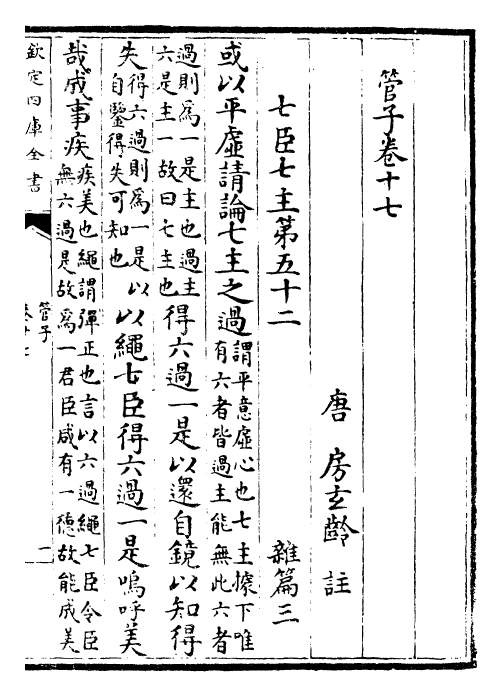 管子卷十七
唐 房玄齡 註
七臣七主第五十二 雜篇三
或以平虛請論七主之過 謂平意虛心也七主據下唯
有六者皆過主能無此六者
過則為一是主也過主
六是主一故曰七主也
得六過一是以還自鏡以知得
失 得六過則為一是以
自鑒得失可知也
以繩七臣得六過一是嗚呼美
哉成事疾 疾美也繩謂彈正也言以六過繩七臣令臣
無六過是故為一君臣咸有一德故能成美
欽定四庫全書
管子
卷十七
一